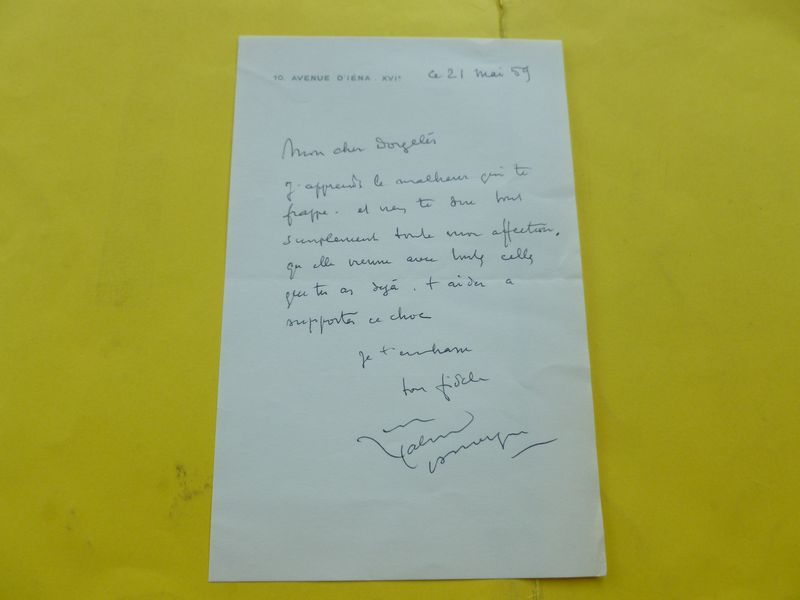 10. AVENUE D'IÉNA . XVIᵉ
ce 21 mai 59
Mon cher Dorgelès
J'apprends le malheur qui te
frappe. et viens te dire tout
simplement toute mon affection.
qu elle vienne avec toutes celles
que tu as déjà. t aider a
supporter ce choc
Je t'embrasse
ton fidèle